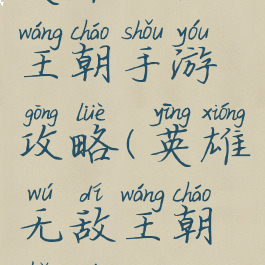 wáng cháo shǒu yóu
王朝手游
gōng lüè yīng xióng
攻略(英雄
wú dí wáng cháo
无敌王朝